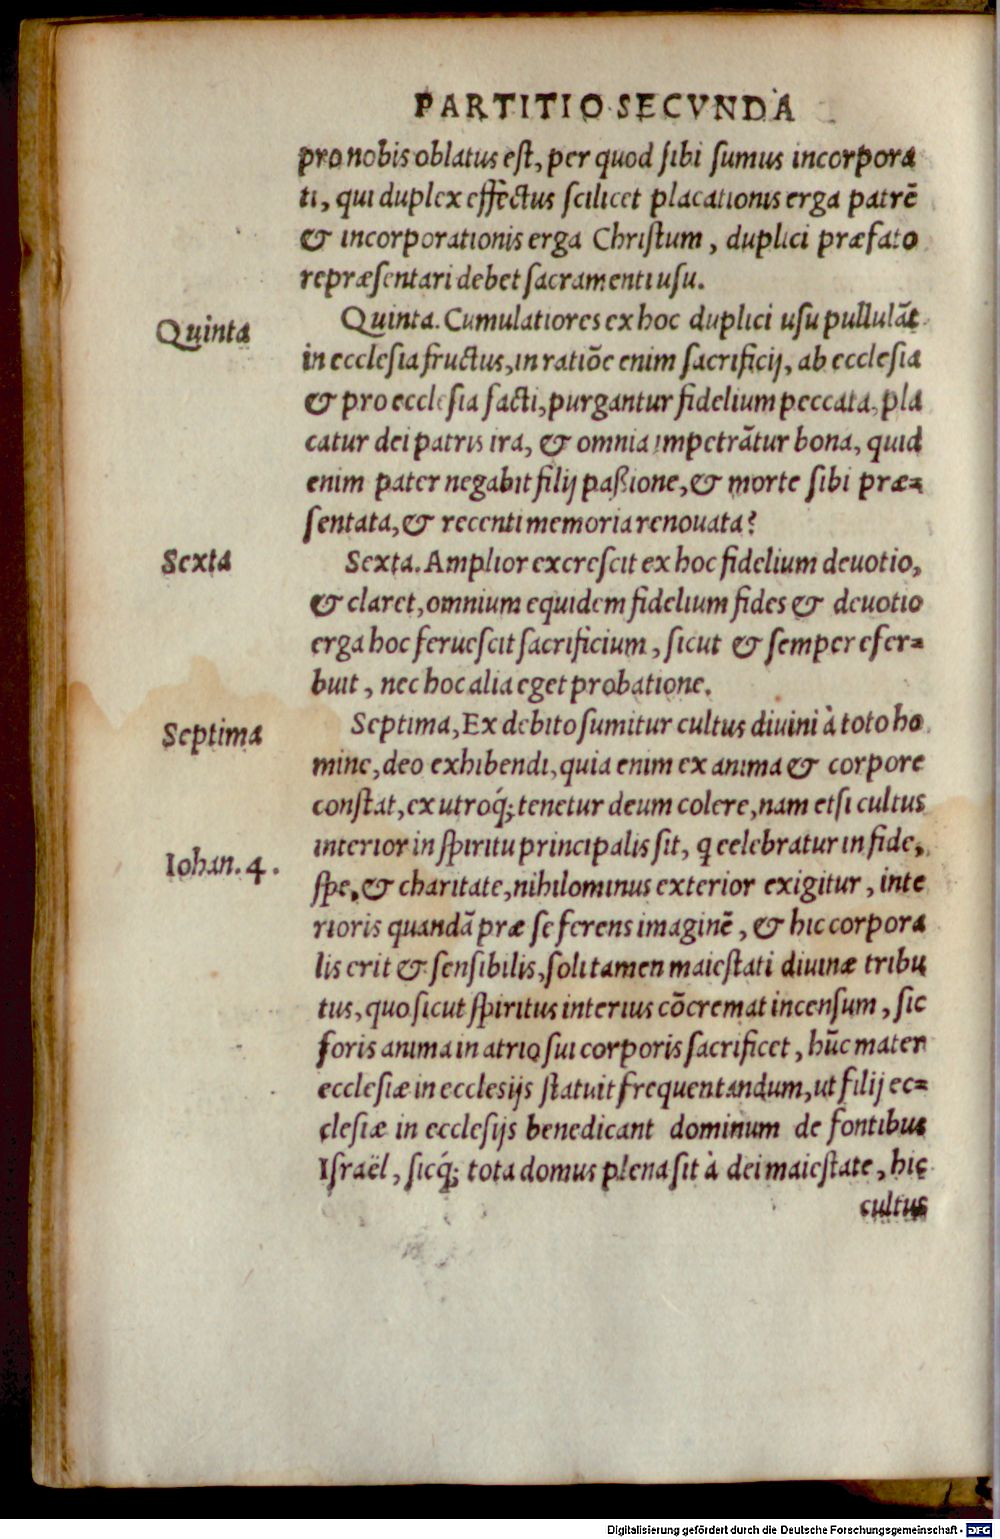 PARTITIO SECVNDA
pro nobis oblatus est, per quod sibi sumus incorpora
ti, qui duplex effectus scilicet placationis erga patrē
& incorporationis erga Christum, duplici præfato
repræsentari debet sacramenti usu.
Quinta
Quinta. Cumulatiores ex hoc duplici usu pullulāt
in ecclesia fructus, in ratiōe enim sacrificij, ab ecclesia
& pro ecclesia facti, purgantur fidelium peccata, pla
catur dei patris ira, & omnia impetrātur bona, quid
enim pater negabit filij paßione, & morte sibi præ=
sentata, & recenti memoria renouata?
Sexta
Sexta. Amplior excrescit ex hoc fidelium deuotio,
& claret, omnium equidem fidelium fides & deuotio
erga hoc feruescit sacrificium, sicut & semper efer=
buit, nec hoc alia eget probatione.
Septima
Septima, Ex debito sumitur cultus diuini à toto ho
mine, deo exhibendi, quia enim ex anima & corpore
constat, ex utroq́; tenetur deum colere, nam etsi cultus
interior in spiritu principalis sit, q celebratur in fide,
Iohan. 4.
spe, & charitate, nihilominus exterior exigitur, inte
rioris quandā præ se ferens imaginē, & hic corpora
lis erit & sensibilis, soli tamen maiestati diuinæ tribu
tus, quo sicut spiritus interius cōcremat incensum, sic
foris anima in atrio sui corporis sacrificet, hūc mater
ecclesiæ in ecclesijs statuit frequentandum, ut filij ec=
clesiæ in ecclesijs benedicant dominum de fontibus
Israël, sicq́; tota domus plena sit à dei maiestate, hic
cultus
Digitalisierung gefördert durch die Deutsche Forschungsgemeinschaft - DFG